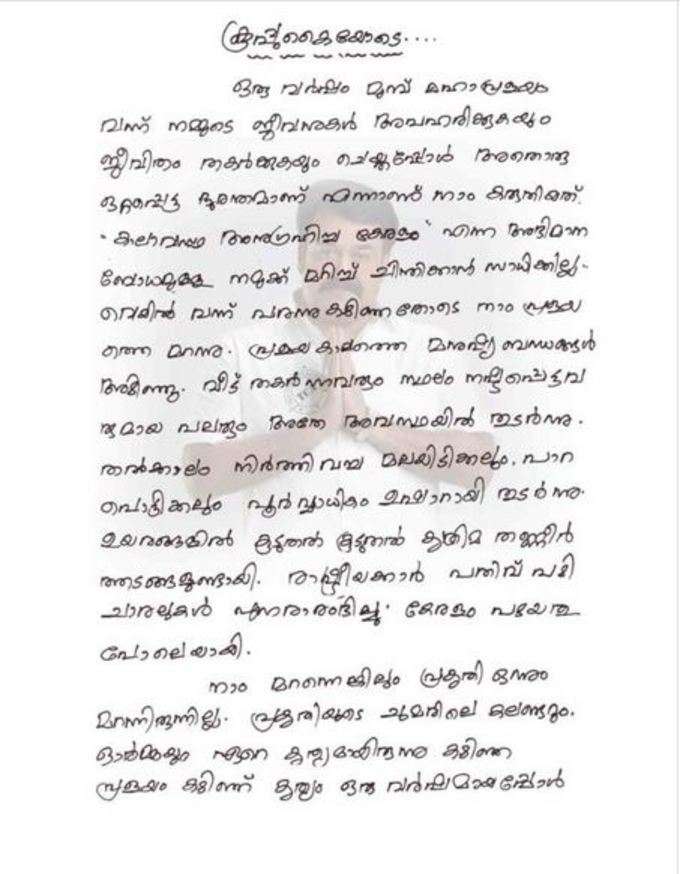 കൂപ്പുകൈയോടെ....
ഒരു വർഷം മുമ്പ് മഹാപ്രളയം
വന്ന് നമ്മുടെ ജീവനുകൾ അപഹരിക്കുകയും
ജീവിതം തകർക്കുകയും ചെയ്തപ്പോൾ അതൊരു
ഒറ്റപ്പെട്ട ദുരന്തമാണ് എന്നാണ് നാം കരുതിയത്.
"കാലാവസ്ഥ അനുഗ്രഹിച്ച കേരളം" എന്ന അഭിമാന
ബോധമുള്ള നമുക്ക് മറിച്ച് ചിന്തിക്കാൻ സാധിക്കില്ല.
വെയിൽ വന്ന് പരന്നു കഴിഞ്ഞതോടെ നാം പ്രളയ
ത്തെ മറന്നു. പ്രളയകാലത്തെ മനുഷ്യ ബന്ധങ്ങൾ
അഴിഞ്ഞു. വീട് തകർന്നവരും സ്ഥലം നഷ്ടപ്പെട്ടവ
രുമായ പലരും അതേ അവസ്ഥയിൽ തുടർന്നു.
തൽക്കാലം നിർത്തി വച്ച മലയിടിക്കലും, പാറ
പൊട്ടിക്കലും പൂർവ്വാധികം ഉഷാറായി തുടർന്നു.
ഉയരങ്ങളിൽ കൂടുതൽ കൂടുതൽ കൃത്രിമ തണ്ണീർ
ത്തടങ്ങളുണ്ടായി. രാഷ്ട്രീയക്കാർ പതിവ് പഴി
ചാരലുകൾ പുനരാരംഭിച്ചു. കേരളം പഴയതു
പോലെയായി.
നാം മറന്നെങ്കിലും പ്രകൃതി ഒന്നും
മറന്നിരുന്നില്ല. പ്രകൃതിയുടെ ചുമരിലെ കലണ്ടറും.
ഓർമ്മകളും ഏറെ കൃത്യമായിരുന്നു കഴിഞ്ഞ
പ്രളയം കഴിഞ്ഞ് കൃത്യം ഒരു വർഷമായപ്പോൾ